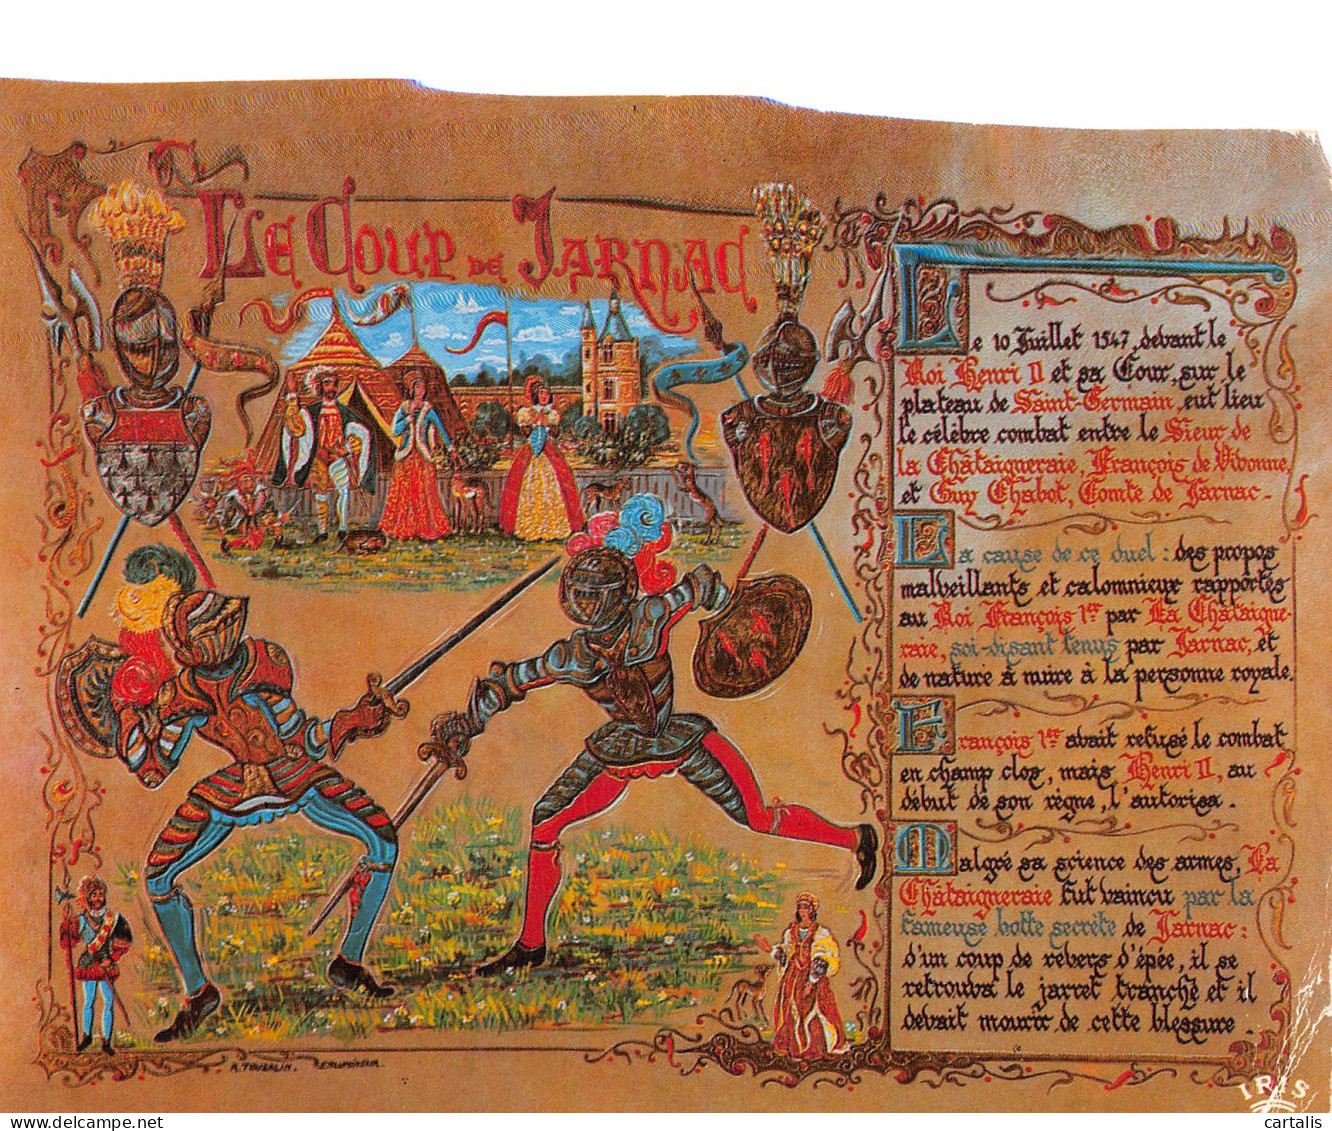 Le Coup de Jarnac
Le 10 Juillet 1547, devant le
Roi Henri II et sa Cour, sur le
plateau de Saint-Germain, eut lieu
le célèbre combat entre le Sieur de
la Châtaigneraie, François de Vivonne,
et Guy Chabot, Comte de Jarnac -
La cause de ce duel : des propos
malveillants et calomnieux rapportés
au Roi François 1er par La Châtaigne-
raie, soi-disant tenus par Jarnac, et
de nature à nuire à la personne royale.
François 1er avait refusé le combat
en champ clos, mais Henri II, au
début de son règne, l'autorisa.
Malgré sa science des armes, La
Châtaigneraie fut vaincu par la
fameuse botte secrète de Jarnac:
d'un coup de revers d'épée, il se
retrouva le jarret tranché et il
devait mourir de cette blessure.
IRIS
cartalis